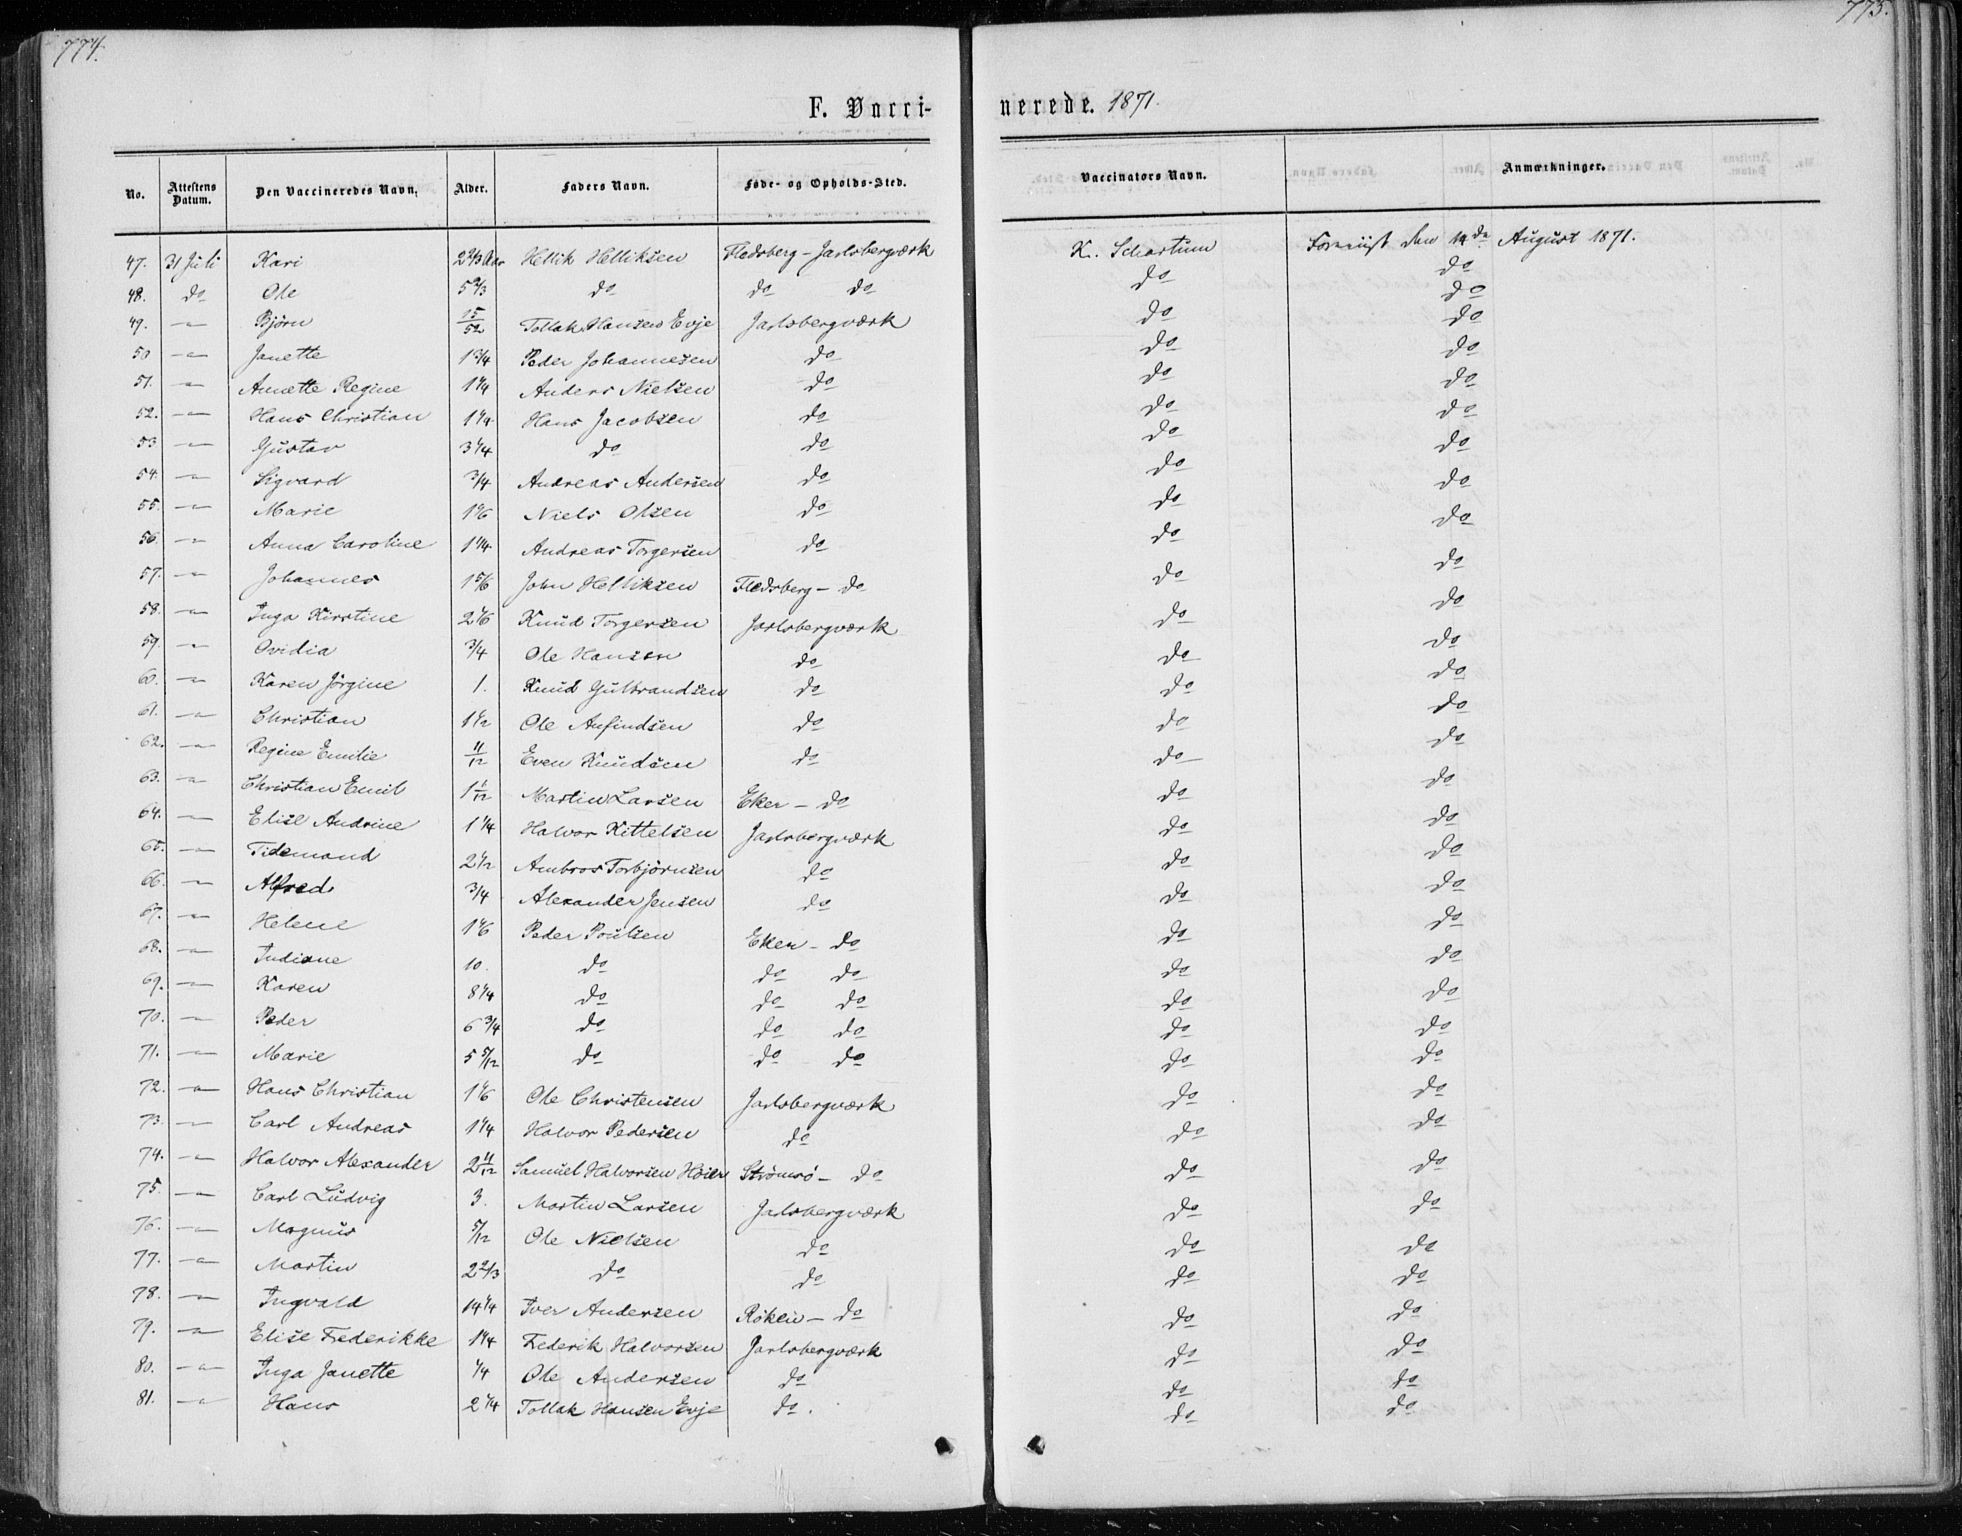 774.
775.
F. Vacci-
nerede. 1871.
No. Attestens Datum. Den Vaccineredes Navn. Alder. Faders Navn. Føde- og Opholds-Sted. Vaccinators Navn. Anmærkninger.
47. 31 Juli Kari 2 2/3 Aar Hellik Helliksen Flesberg - Jarlsbergværk K. Schartum den 14de August 1871.
48. do Ole 5 2/3 do do do do do
49. — Bjørn 15/52 Tollak Hansen Evje Jarlsbergværk do do
50 — Janette 1 3/4 Peder Johannesen do do do
51. — Anette Regine 1 1/4 Anders Nielsen do do do
52. — Hans Christian 1 1/4 Hans Jacobsen do do do
53 — Gustav 3 1/4 do do do do
54. — Sigvard 3/4 Andreas Andersen do do do
55. — Marie 1 1/6 Niels Olsen do do do
56 — Anna Caroline 1 1/4 Andreas Torgersen do do do
57. — Johannes 1 5/6 John Helliksen Flesberg - do do do
58. — Inga Kirstine 2 1/6 Knud Torgersen Jarlsbergværk do do
59. — Ovidia 3/4 Ole Hansen do do do
60. — Karen Jørgine 1. Knud Gulbrandsen do do do
61. — Christian 1 1/2 Ole Anfindsen do do do
62. — Regine Emilie 11/12 Even Knudsen do do do
63. — Christian Emil 1 1/12 Martin Larsen Eker - do do do
64. — Elise Andrine 1 1/4 Halvor Kittelsen Jarlsbergværk do do
65. — Tidemand 2 1/2 Ambros Torbjørnsen do do do
66. — Alfred 3/4 Alexander Jensen do do do
67. — Helene 1 1/6 Peder Poulsen Eker - do do do
68. — Indiane 10. do do do do do
69. — Karen 8 1/4 do do do do do
70. — Peder 6 3/4 do do do do do
71. — Marie 5 5/12 do do do do do
72. — Hans Christian 1 1/6 Ole Christensen Jarlsbergværk do do
73. — Carl Andreas 1 1/4 Halvor Pedersen do do do
74. — Halvor Alexander 2 11/12 Samuel Halvorsen Høier Strömsö - do do do
75. — Carl Ludvig 3. Martin Larsen Jarlsbergværk do do
76. — Magnus 5/12 Ole Nielsen do do do
77. — Martin 2 2/3 do do do do
78. — Ingvald 14 1/4 Iver Andersen Röken - do do do
79. — Elise Frederikke 1 1/4 Frederik Halvorsen Jarlsbergværk do do
80. — Inga Janette 1/4 Ole Andersen do do do
81. — Hans 2 1/4 Tollak Hansen Evje do. do do